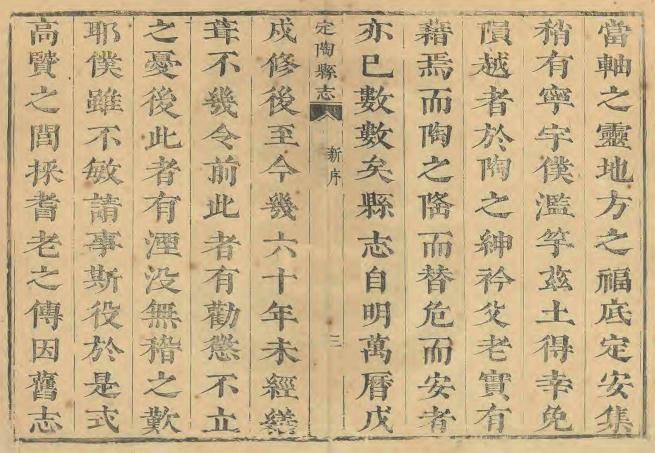 當軸之靈地方之福底定安集
稍有寧宇僕濫竽茲土得幸免
隕越者於陶之紳衿父老實有
藉焉而陶之隆而替危而安者
亦已數數矣縣志自明萬曆戊
定陶縣志 新序 三
戍修後至今幾六十年未經繕
葺不幾令前此者有勸懲不立
之憂後此者有湮没無稽之歎
耶僕雖不敏請事斯役於是式
高賢之閭採耆老之傳因舊志